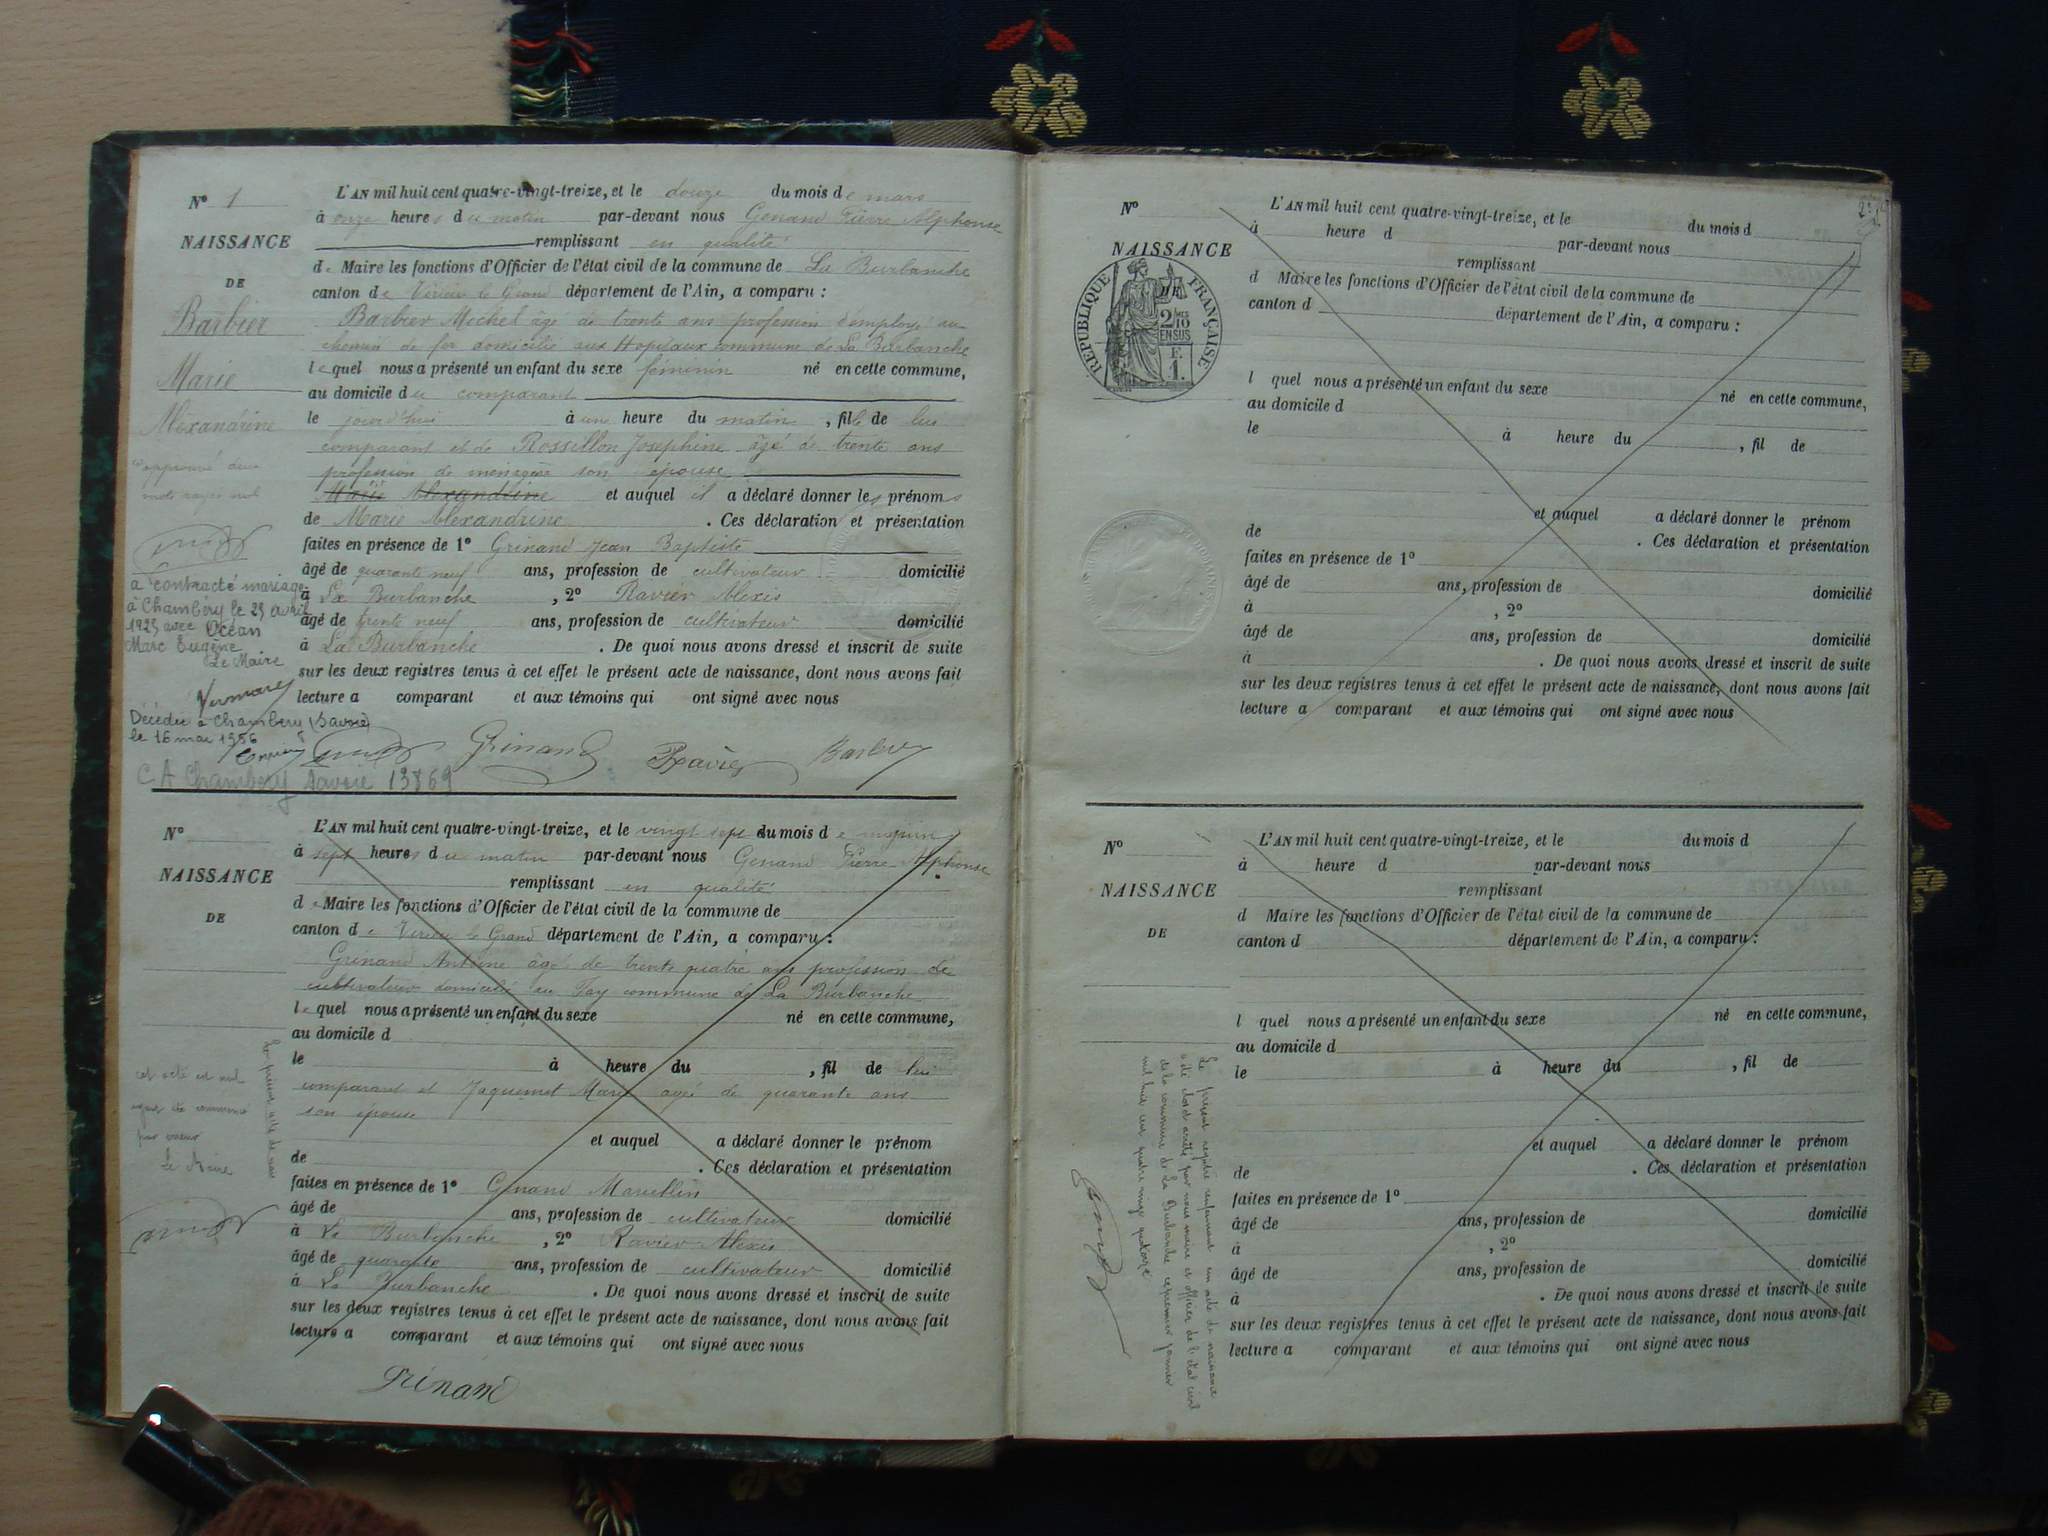 N° 1
NAISSANCE
DE
Barbier
Marie
Alexandrine
approuvé deux
mots rayés nul
a contracté mariage
à Chambéry le 25 avril
1925 avec Océan
Marc Eugène
Le Maire
Décédée à Chambéry (Savoie)
le 16 mai 1956
CA Chambéry Savoie 13869
L'AN mil huit cent quatre-vingt-treize, et le douze du mois de mars
à onze heures du matin par-devant nous Genand Pierre Alphonse
remplissant en qualité
de Maire les fonctions d'Officier de l'état civil de la commune de La Burbanche
canton de Virieu le Grand département de l'Ain, a comparu :
Barbier Michel âgé de trente ans profession d'employé au
chemin de fer domicilié aux Hopitaux commune de La Burbanche
lequel nous a présenté un enfant du sexe féminin né en cette commune,
au domicile du comparant
le jourd'hui à un heure du matin, fille de lui
comparant et de Rossillon Josephine âgé de trente ans
profession de ménagère son épouse
Marie Alexandrine et auquel il a déclaré donner les prénoms
de Marie Alexandrine . Ces déclaration et présentation
faites en présence de 1° Grinand Jean Baptiste
âgé de quarante neuf ans, profession de cultivateur domicilié
à La Burbanche , 2° Ravier Alexis
âgé de trente neuf ans, profession de cultivateur domicilié
à La Burbanche . De quoi nous avons dressé et inscrit de suite
sur les deux registres tenus à cet effet le présent acte de naissance, dont nous avons fait
lecture a comparant et aux témoins qui ont signé avec nous
Grinand Ravier Barbier
N°
NAISSANCE
DE
cet acte est nul
ayant été commencé
par erreur
Le Maire
L'AN mil huit cent quatre-vingt-treize, et le vingt sept du mois de
à sept heures du matin par-devant nous Genand Pierre Alphonse
remplissant en qualité
de Maire les fonctions d'Officier de l'état civil de la commune de
canton de Virieu le Grand département de l'Ain, a comparu :
Grinand Antoine âgé de trente quatre ans profession de
cultivateur domicilié au Fay commune de La Burbanche
lequel nous a présenté un enfant du sexe né en cette commune,
au domicile d
le à heure du , fil de lui
comparant et Jaquemet Marie agée de quarante ans
son épouse
et auquel a déclaré donner le prénom
de . Ces déclaration et présentation
faites en présence de 1° Genand Marcellin
âgé de ans, profession de cultivateur domicilié
à La Burbanche , 2° Ravier Alexis
âgé de quarante ans, profession de cultivateur domicilié
à La Burbanche . De quoi nous avons dressé et inscrit de suite
sur les deux registres tenus à cet effet le présent acte de naissance, dont nous avons fait
lecture a comparant et aux témoins qui ont signé avec nous
Grinand
N°
NAISSANCE
RÉPUBLIQUE FRANÇAISE
2/10
EN SUS
F.
1.
L'AN mil huit cent quatre-vingt-treize, et le du mois d
à heure d par-devant nous
remplissant
d Maire les fonctions d'Officier de l'état civil de la commune de
canton d département de l'Ain, a comparu :
l quel nous a présenté un enfant du sexe né en cette commune,
au domicile d
le à heure du , fil de
et auquel a déclaré donner le prénom
de . Ces déclaration et présentation
faites en présence de 1°
âgé de ans, profession de domicilié
à , 2°
âgé de ans, profession de domicilié
à . De quoi nous avons dressé et inscrit de suite
sur les deux registres tenus à cet effet le présent acte de naissance, dont nous avons fait
lecture a comparant et aux témoins qui ont signé avec nous
N°
NAISSANCE
DE
Le présent registre renfermant un acte de naissance
a été clos et arrêté par nous maire et officier de l'état civil
de la commune de La Burbanche ce premier janvier
mil huit cent quatre vingt quatorze
L'AN mil huit cent quatre-vingt-treize, et le du mois d
à heure d par-devant nous
remplissant
d Maire les fonctions d'Officier de l'état civil de la commune de
canton d département de l'Ain, a comparu :
l quel nous a présenté un enfant du sexe né en cette commune,
au domicile d
le à heure du , fil de
et auquel a déclaré donner le prénom
de . Ces déclaration et présentation
faites en présence de 1°
âgé de ans, profession de domicilié
à , 2°
âgé de ans, profession de domicilié
à . De quoi nous avons dressé et inscrit de suite
sur les deux registres tenus à cet effet le présent acte de naissance, dont nous avons fait
lecture a comparant et aux témoins qui ont signé avec nous